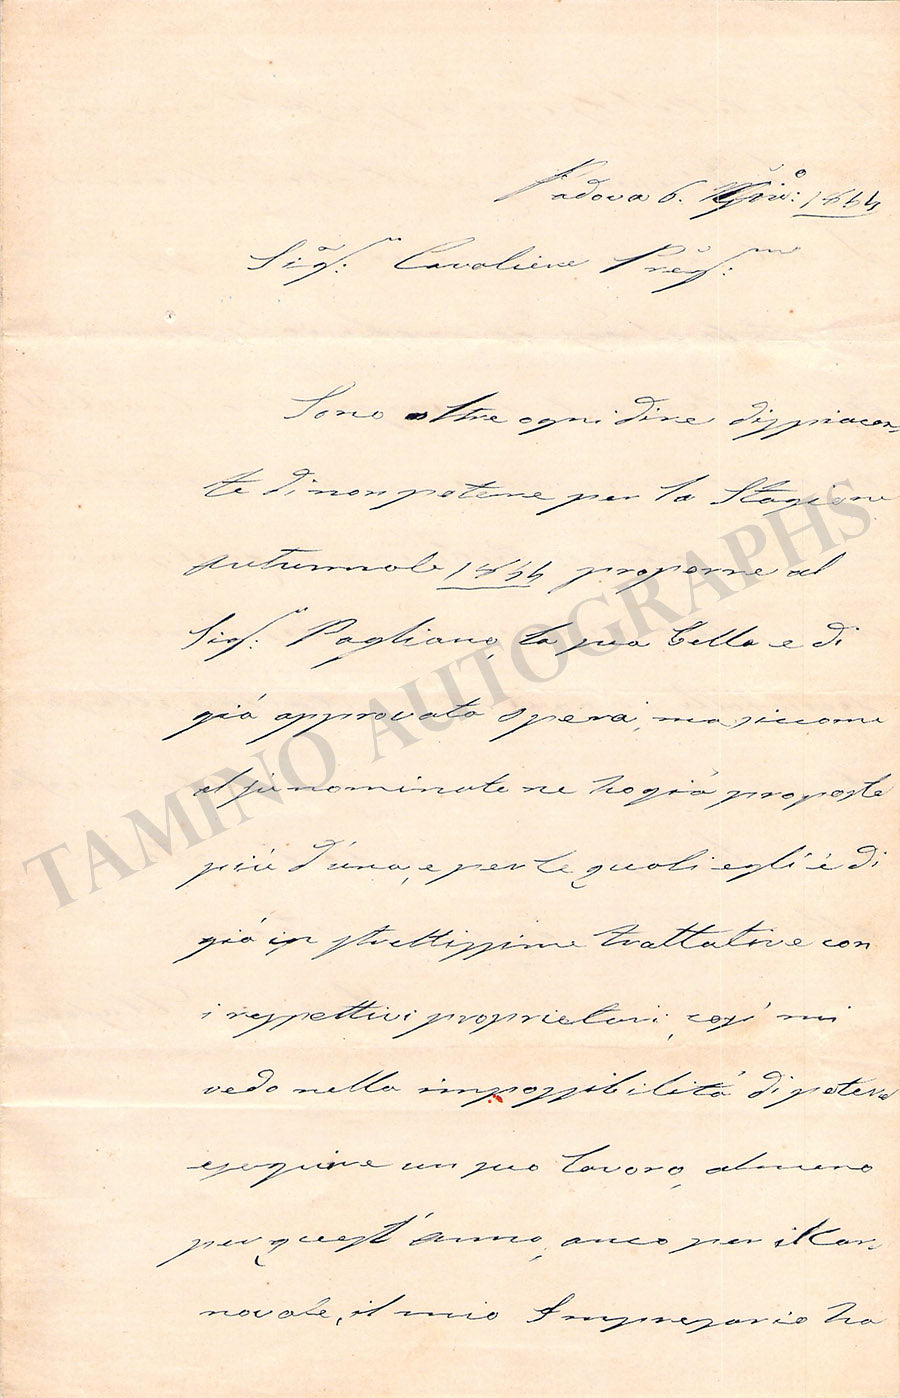 Padova 6. 1844
Sigr. Cavaliere Pregmo
Sono oltre ogni dire disspiacen
te di non potere per la Stagione
autunnale 1844 proporre al
Sigr. Pagliano, la sua bella e di
già approvata opera, ma siccome
el su nominato ne ha già proposte
più d'una, e per le quali egli è di
già in strettissime trattative con
i respettivi proprietari, così mi
vedo nella impossibilità di potere
eseguire un suo lavoro, almeno
per quest'anno, anco per il Car
novale, il mio Impresario ha
TAMINO AUTOGRAPHS